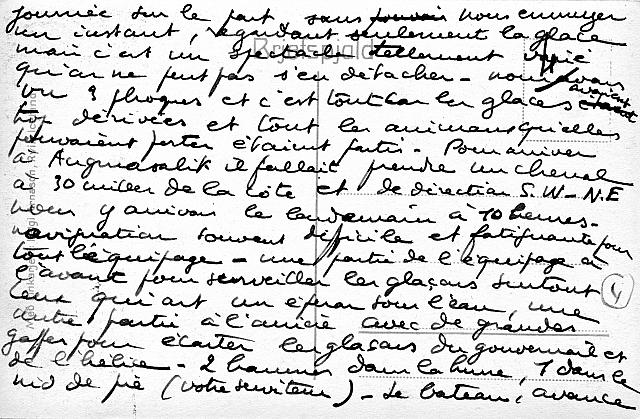 journée sur le pont sans pouvoir nous ennuyer
un instant, regardant seulement la glace
mais c'est un spectacle tellement varié
qu'on ne peut pas s'en détacher - nous avons
vu 3 phoques et c'est tout car les glaces avaient étaient
trop dérivées et tout les animaux qu'elles
pouvaient porter étaient partis. Pour arriver
à Angmasalik il fallait prendre un chenal
à 30 milles de la côte et de direction S.W - N.E
nous y arrivons le lendemain à 10 heures.
navigation souvent difficile et fatigante pour
tout l'équipage - une partie de l'équipage à
l'avant pour surveiller les glaçons surtout
ceux qui ont un éperon sous l'eau, une
autre partie à l'arrière avec de grandes
gaffes pour écarter les glaçons du gouvernail et
de l'hélice - 2 hommes dans la hune, 1 dans le
nid de pie (votre serviteur) - Le bateau avance
4
Brevkort